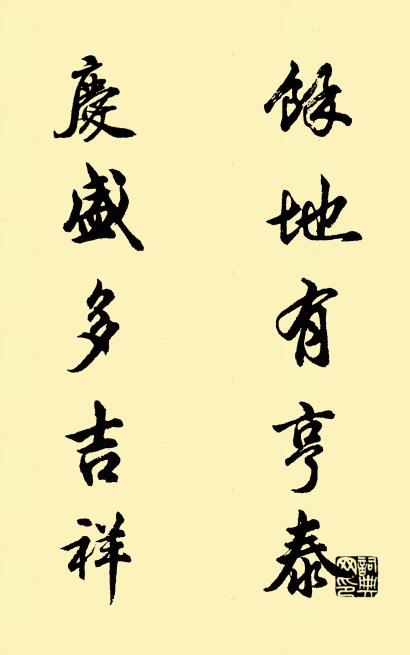 餘地有亨泰
慶盛多吉祥
詞典网印